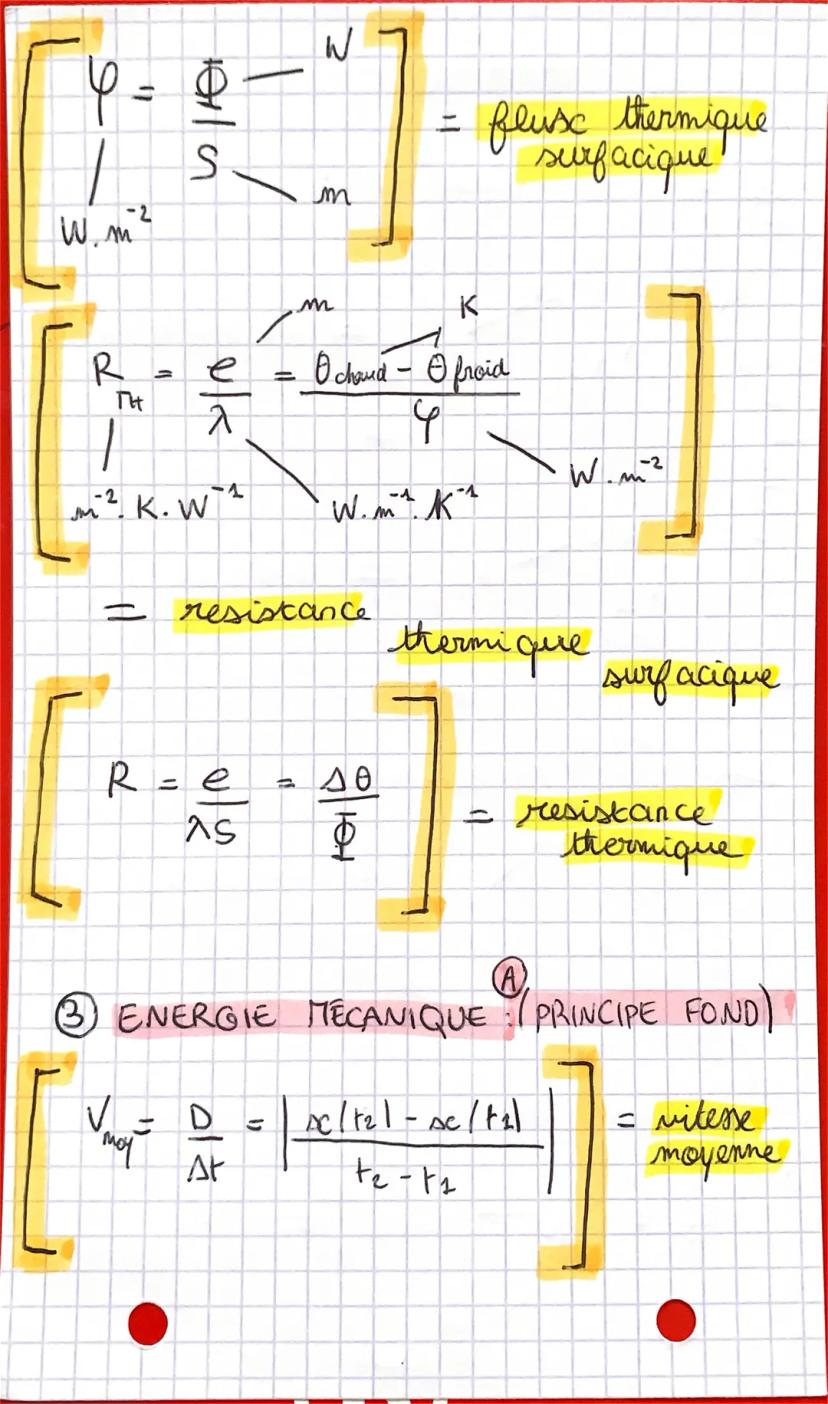 φ = Φ / S
W
m
W.m⁻²
= flux thermique
surfacique
m
K
R TH = e / λ = θ chaud - θ froid / φ
m⁻².K.W⁻¹
W.m⁻¹.K⁻¹
W.m⁻²
= resistance
thermique
surfacique
R = e / λS = Δθ / Φ
= resistance
thermique
A
3 ENERGIE MECANIQUE : (PRINCIPE FOND)
Vmoy = D / Δt = | x(t2) - x(t1) / t2 - t1 |
= vitesse
moyenne